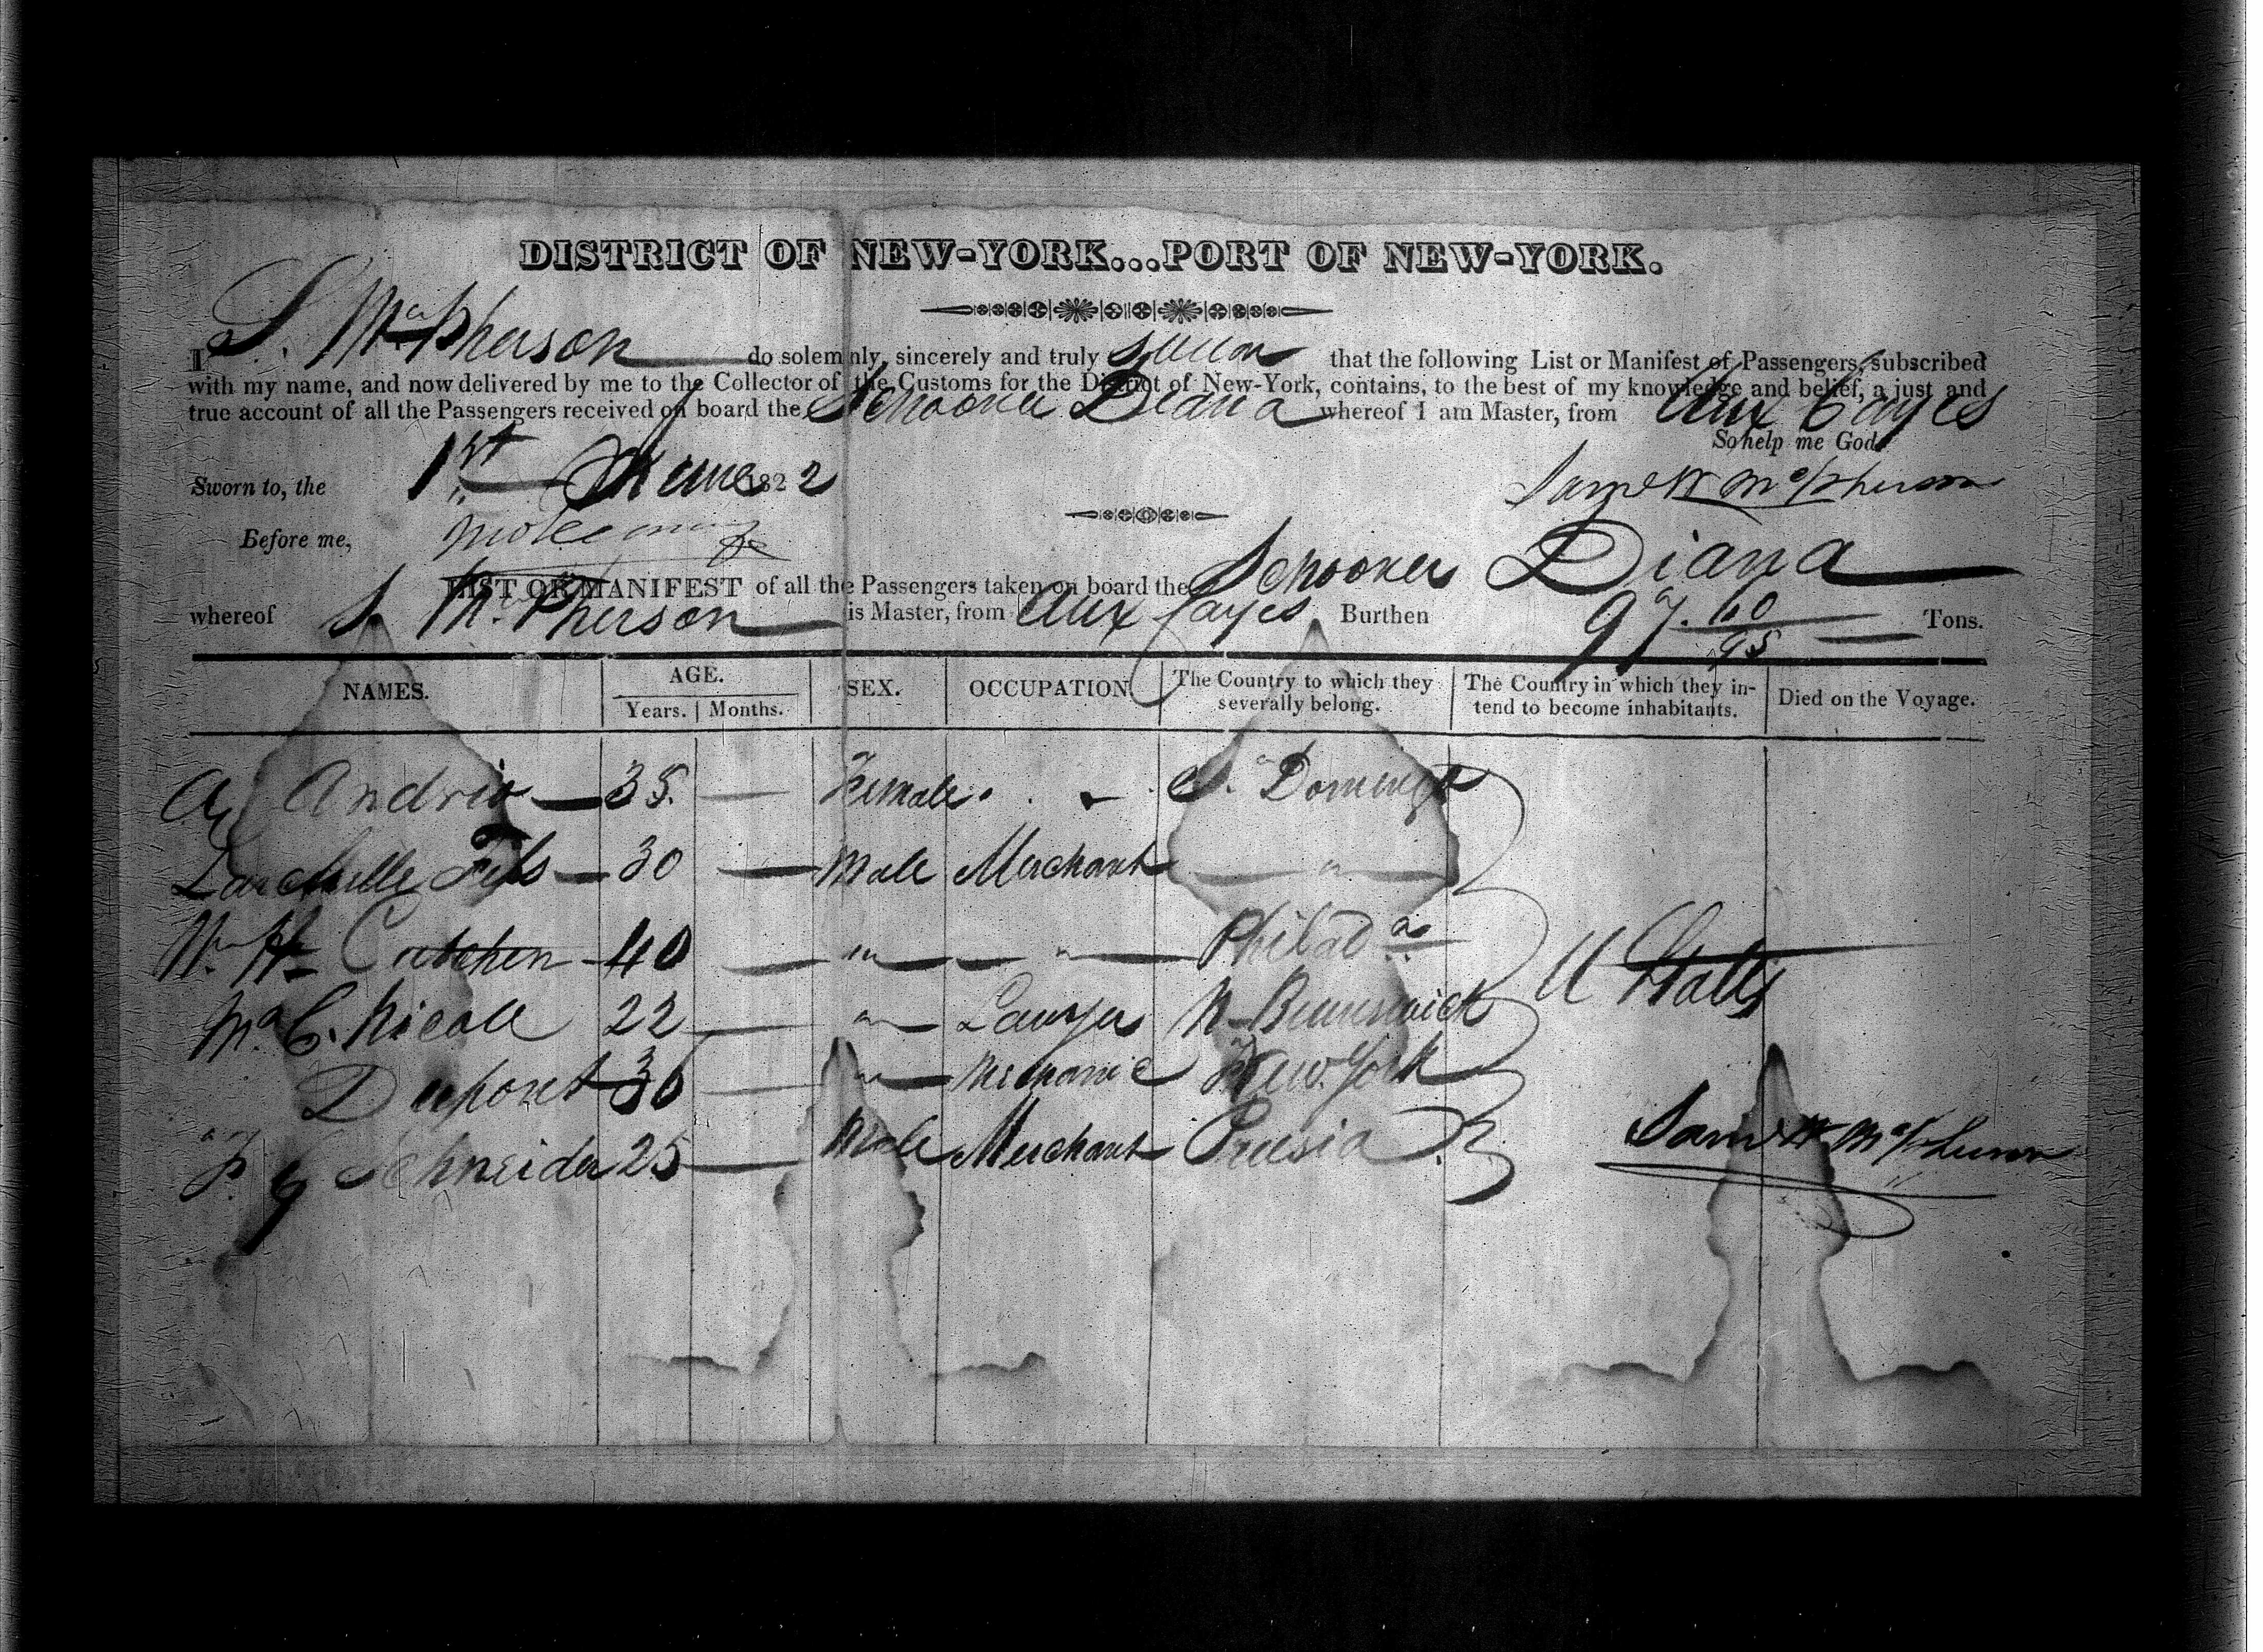 DISTRICT OF NEW-YORK...PORT OF NEW-YORK.
I S. McPherson do solemnly, sincerely and truly swear that the following List or Manifest of Passengers, subscribed
with my name, and now delivered by me to the Collector of the Customs for the District of New-York, contains, to the best of my knowledge and belief, a just and
true account of all the Passengers received on board the Schooner Diana whereof I am Master, from Aux Cayes
So help me God.
Sworn to, the 1st June 1822 Saml W McPherson
Before me,
LIST OR MANIFEST of all the Passengers taken on board the Schooner Diana
whereof S. McPherson is Master, from Aux Cayes Burthen 97. 10/95 Tons.
NAMES. AGE. SEX. OCCUPATION. The Country to which they severally belong. The Country in which they in-tend to become inhabitants. Died on the Voyage.
Years. Months.
A Andrio 35. Female. S. Domingo
Fils 30 Male Merchant "
Wm H. Cutchen 40 " " Philada
C. Nicoll 22 " Lawyer N Brunswick U States
Dupont 36 " Mechanic New York
F. G Schneider 25 Male Merchant Prusia Saml W McPherson